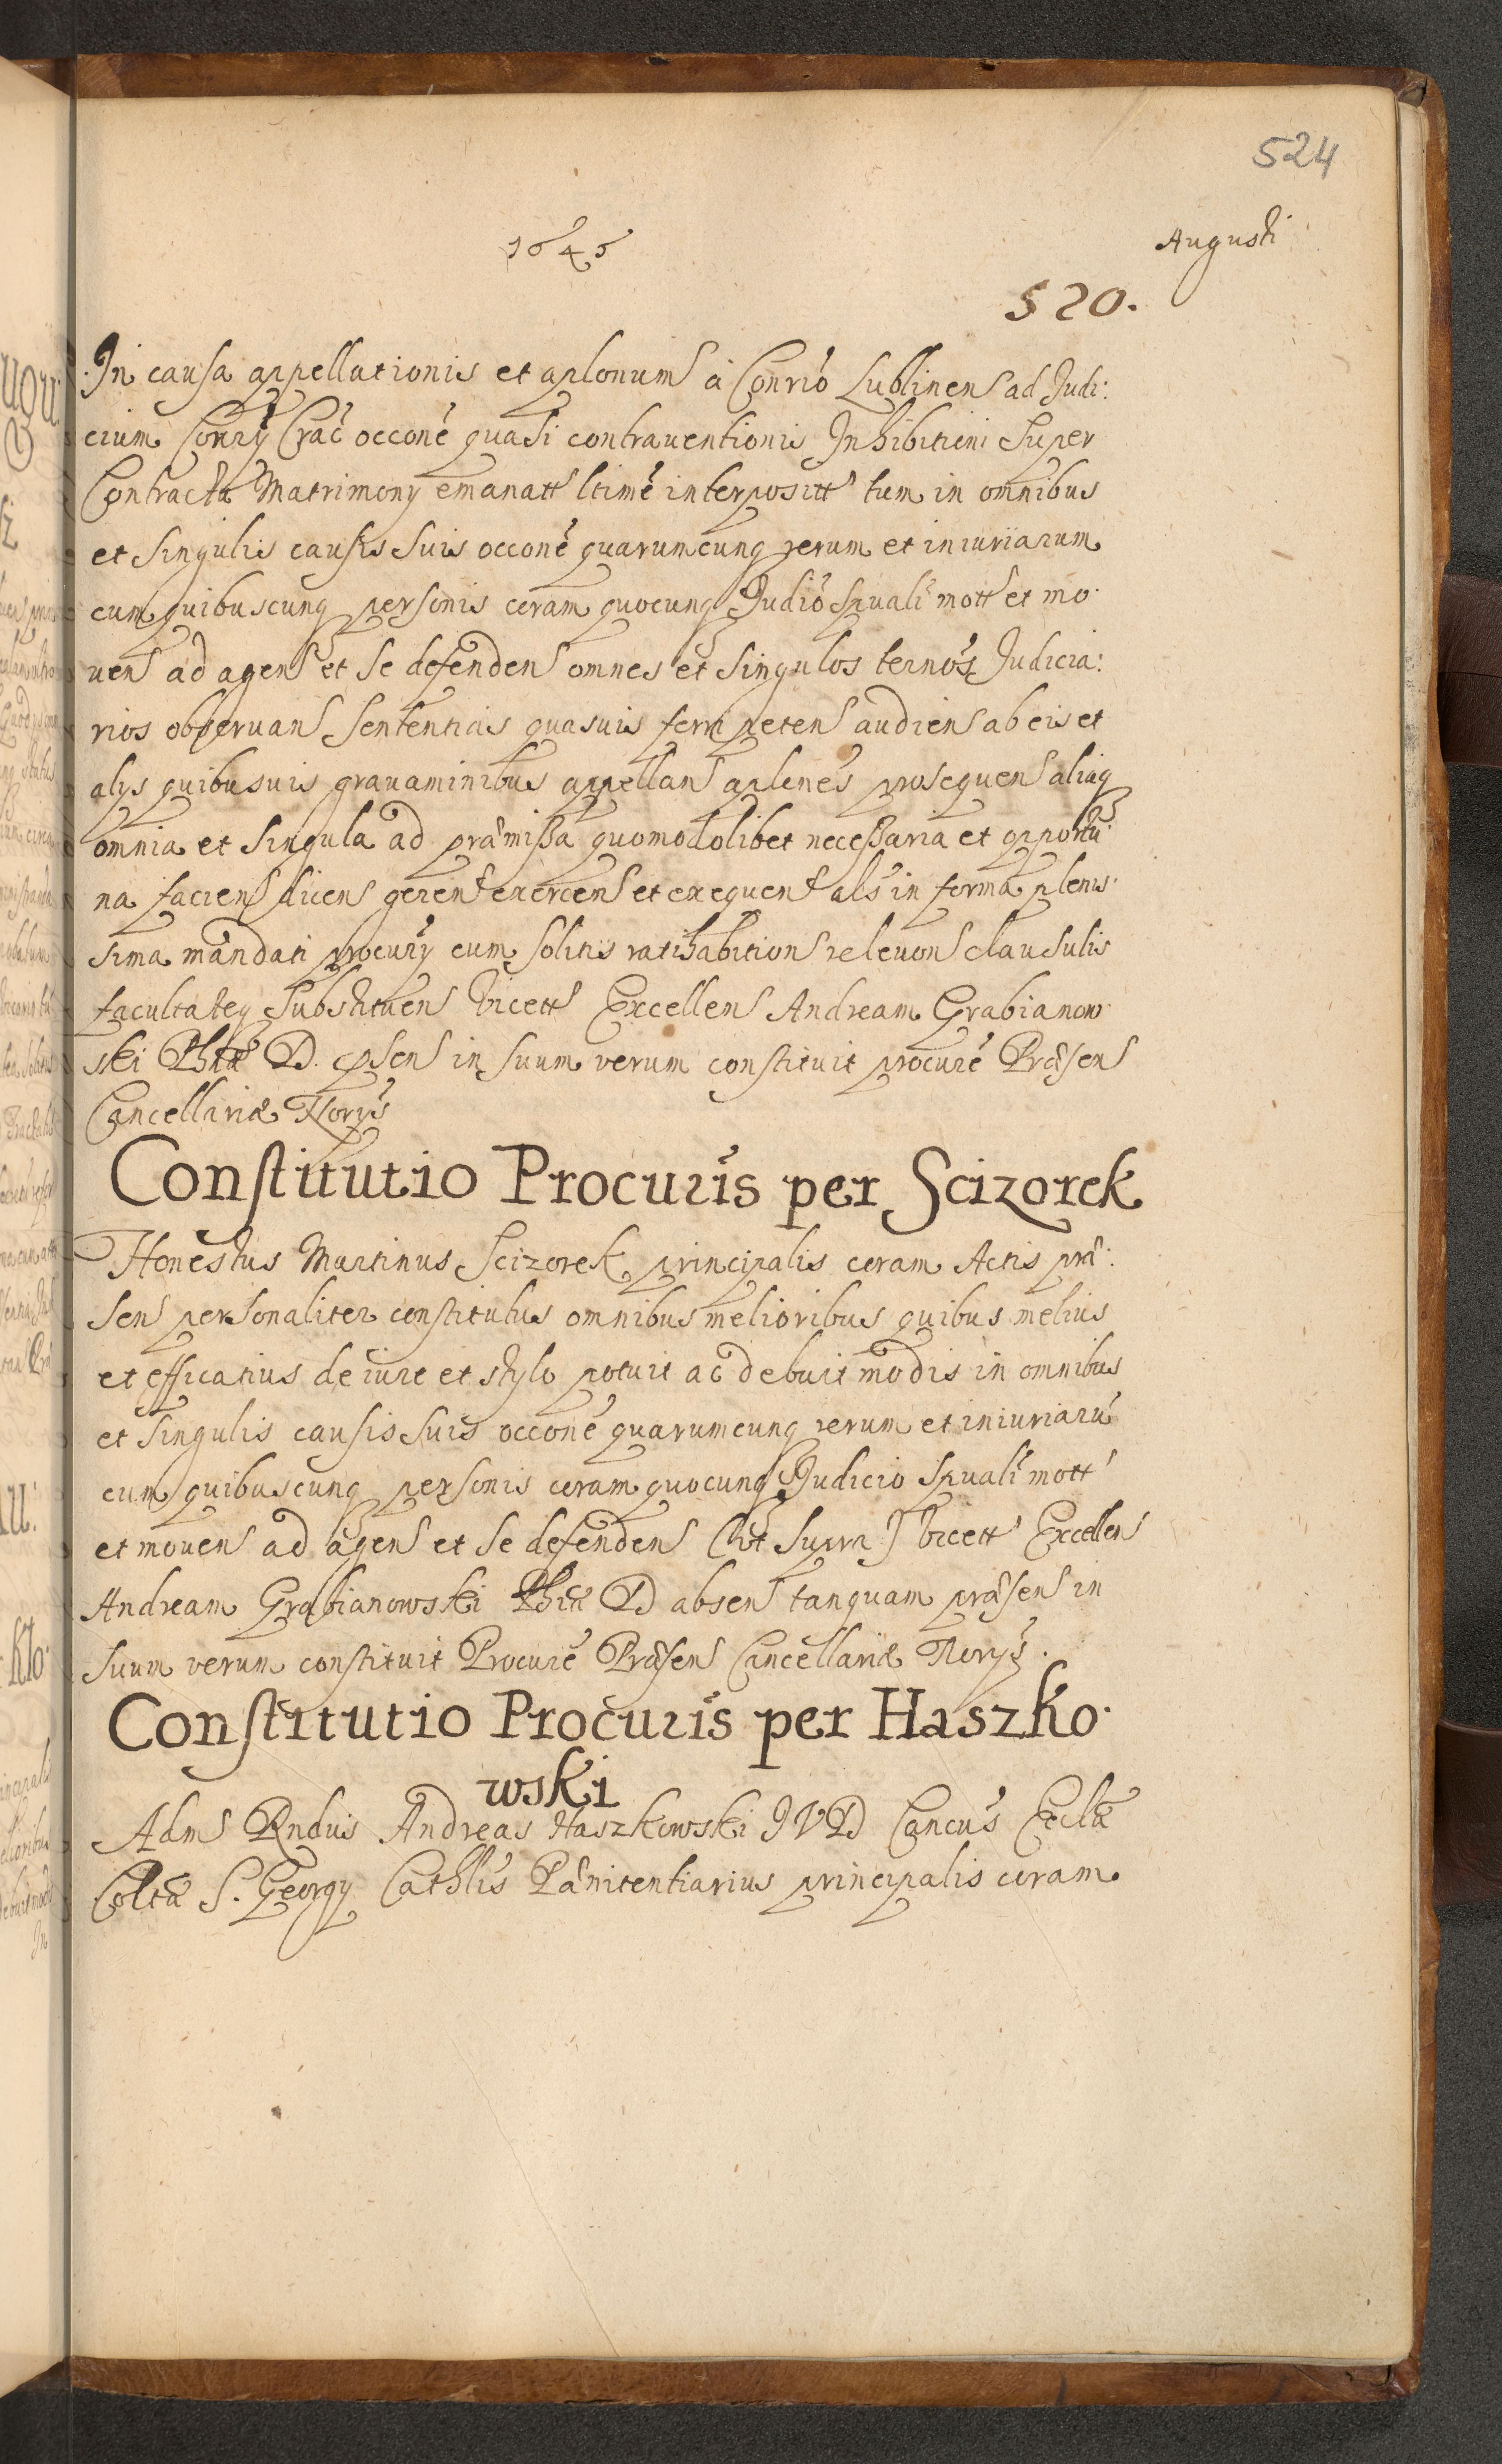 524
1646
Augusti
520.
In causa appellationis et aplonum à Conrio Lublinen ad Judi:
cium Conrij Crac occone quasi contrauentionis Inhibitioni Super
Contractu Matrimonij emanatt ltime interpositt tum in omnibus
et Singulis causis Suis occone quarumcunq rerum et iniuriarum
cum quibuscunq personis coram quocunq Judio Spuali mott et mo
uen ad agen et Se defenden omnes et Singulos ternos Judicia:
rios obseruan Sententias quasuis ferri peten audien ab eis et
alijs quibusuis grauaminibus appellan aplones prosequen aliaq
omnia et Singula ad præmissa quomodolibet necessaria et opportu
na facien dicen geren exercen et exequen als in forma plenis
sima mandati procurij cum Solitis ratihabition releuon clausulis
facultateq Substituen Vicett Excellen Andream Grabianow
ski Phiæ D. psen in Suum verum constituit procure Præsen
Cancellariæ Norijs
Constitutio Procuris per Scizorek
Honestus Martinus Scizorek principalis coram Actis præ:
sen personaliter constitutus omnibus melioribus quibus melius
et efficatius de iure et stylo potuit ac debuit modis in omnibus
et Singulis causis Suis occone quarumcunq rerum et iniuriaru
cum quibuscunq personis coram quocunq Judicio Spuali mott
et mouen ad agen et Se defenden (ut Supra) Vicett Excellen
Andream Grabianowski Phiæ D absen tanquam præsen in
Suum verum constituit Procure Præsen Cancellariæ Norijs.
Constitutio Procuris per Haszko
wski
Adm Rndus Andreas Haszkowski J V D Cancus Eccliæ
Coltæ S. Georgij Cathlis Pænitentiarius principalis coram